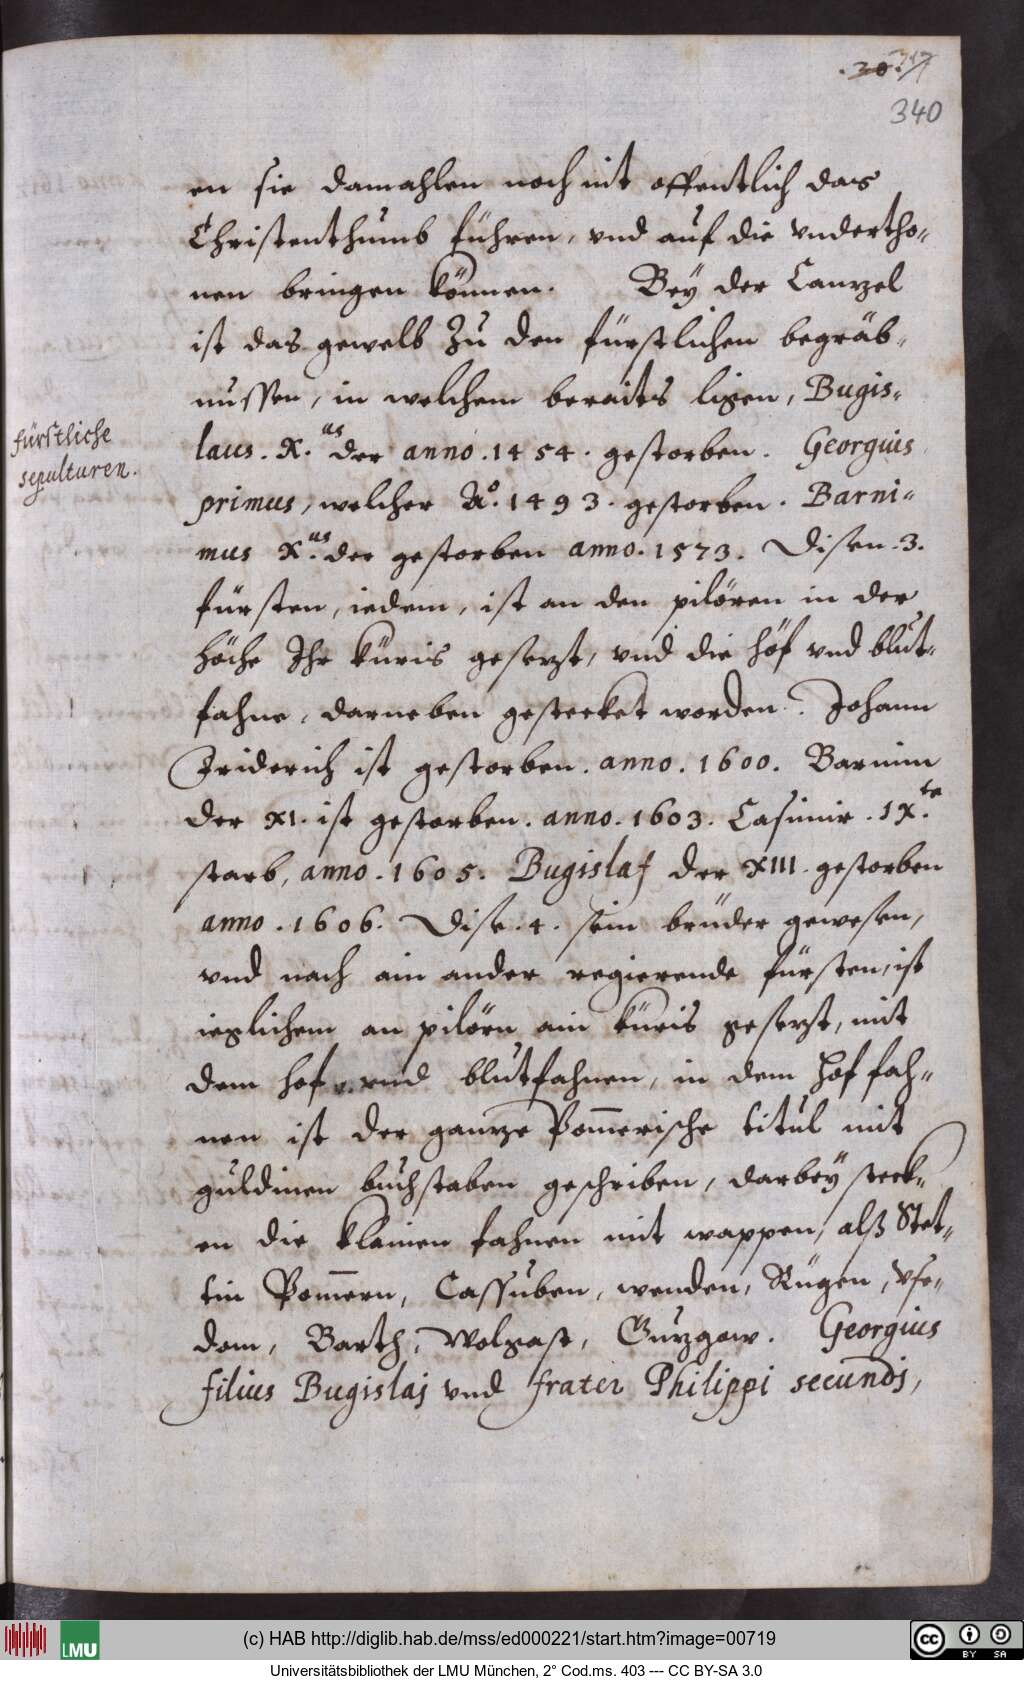 340
en sie damahlen noch nit offentlich das
Christenthumb führen, vnd auf die vndertho-
nen bringen können. Bey der Canzel
ist das gewelb Zu den fürstlichen begräb-
nussen, in welchem beraits ligen, Bugis-
laus. X.us der anno. 1454. gestorben. Georgius
fürstliche
sepulturen.
primus, welcher Ao. 1493. gestorben. Barni-
mus X.us der gestorben anno. 1573. Disen. 3.
fürsten, iedem, ist an den pilören in der
Höche Ihr küris gesezt, vnd die höf vnd blut-
fahne, darneben gestecket worden. Johann
Friderich ist gestorben. anno. 1600. Barnim
der XI. ist gestorben. anno. 1603. Casimir. IX.te
starb, anno. 1605. Bugislaf der XIII. gestorben
anno. 1606. Dise. 4. sein brüder gewesen,
vnd nach ain ander regierende fürsten, ist
ieglichem an pilörn ain küris gesezt, mit
dem hof vnd blutfahnen, in dem hof fah-
nen ist der ganze Pom̄erische titul mit
guldinen buchstaben geschriben, darbey steck-
en die klainen fahnen mit wappen, alß Stet-
tin Pom̄ern, Cassuben, wenden, Rügen, Vse-
dom, Barth, Wolgast, Guzgow. Georgius
filius Bugislaj vnd frater Philippi secundj,
(c) HAB http://diglib.hab.de/mss/ed000221/start.htm?image=00719
LMU
CC BY SA
Universitätsbibliothek der LMU München, 2° Cod.ms. 403 --- CC BY-SA 3.0